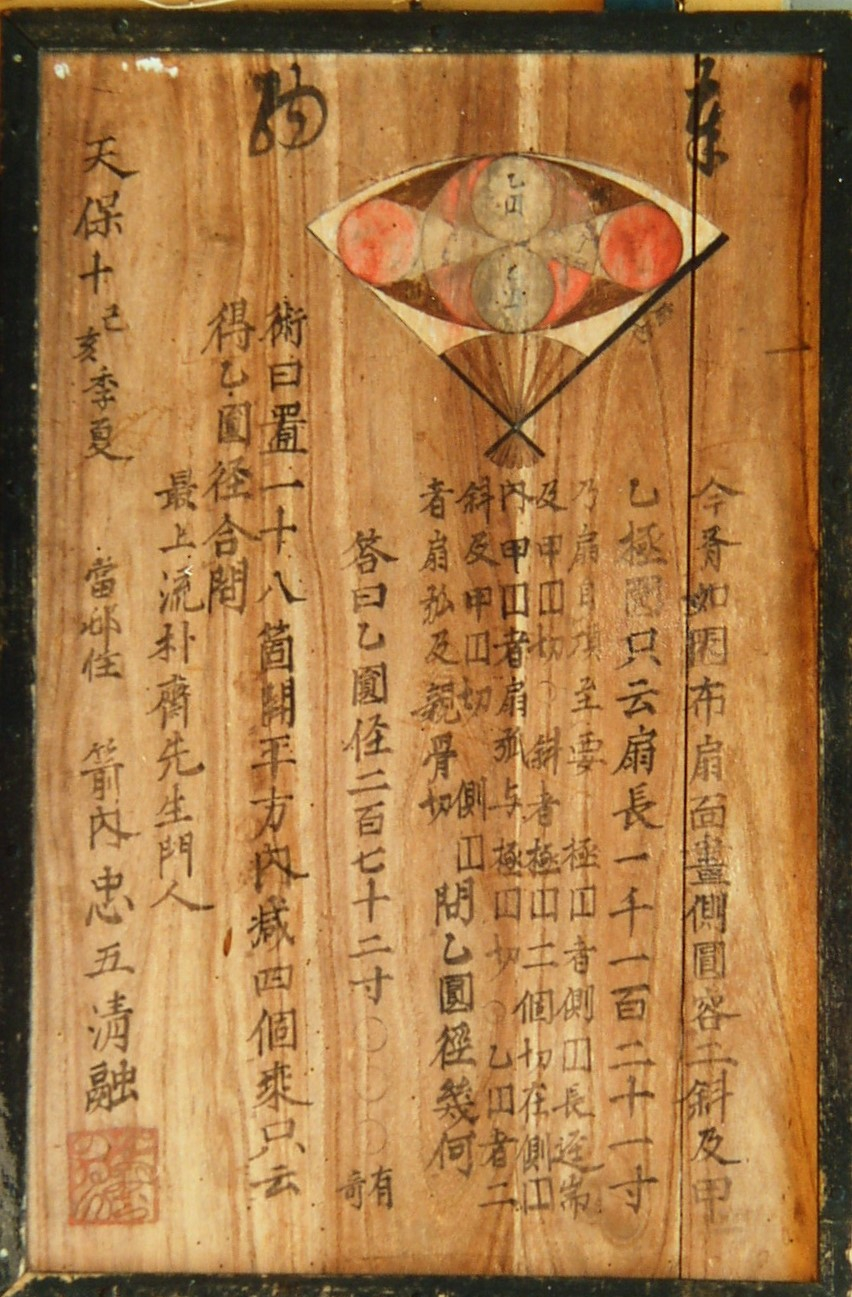 奉
納
乙円
今有如図布扇面畫側圓容二斜及甲
乙極圓只云扇長一千一百二十一寸
乃扇自頂至要 極囗者側囗長逕
及甲囗切〇斜者極囗二個切在側囗
内甲囗者扇弧与極囗切〇乙囗者二
斜及甲囗切 側囗
者扇弧及親骨切
問乙圓径幾何
答曰乙圓径二百七十二寸〇〇〇有奇
術曰置一十八箇開平方内减四個乘只云
得乙圓径合問
最上流朴齊先生門人
天保十己亥季夏
當邨住 箭内忠五清融